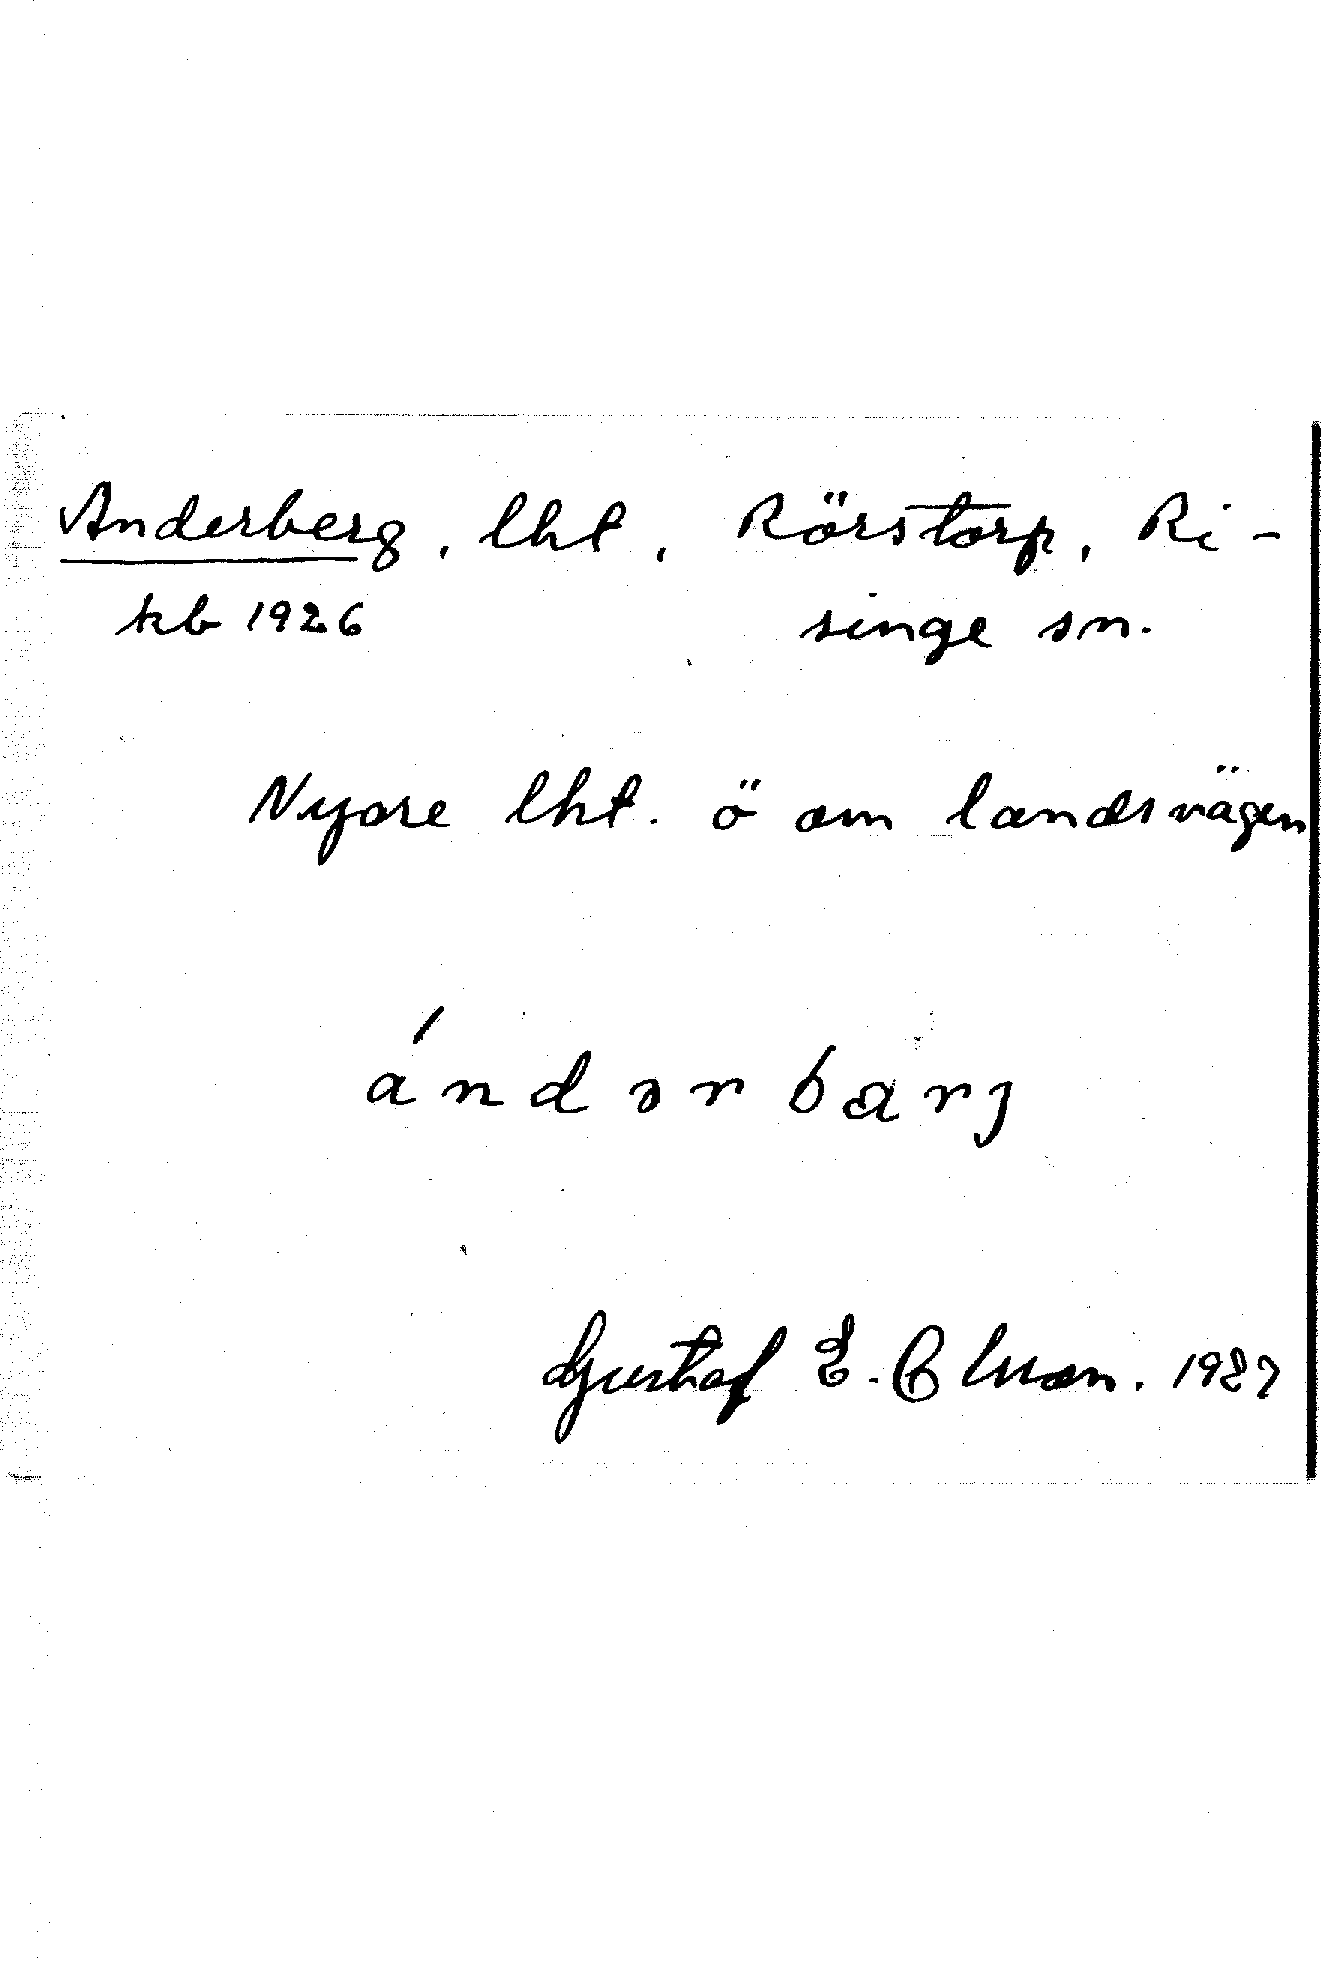 Anderberg, lht, Rörstorp, Ri-
kb 1926 singe sn.
Nyare lht. ö om landsvägen
ándərbärj
Gustaf E. 1927